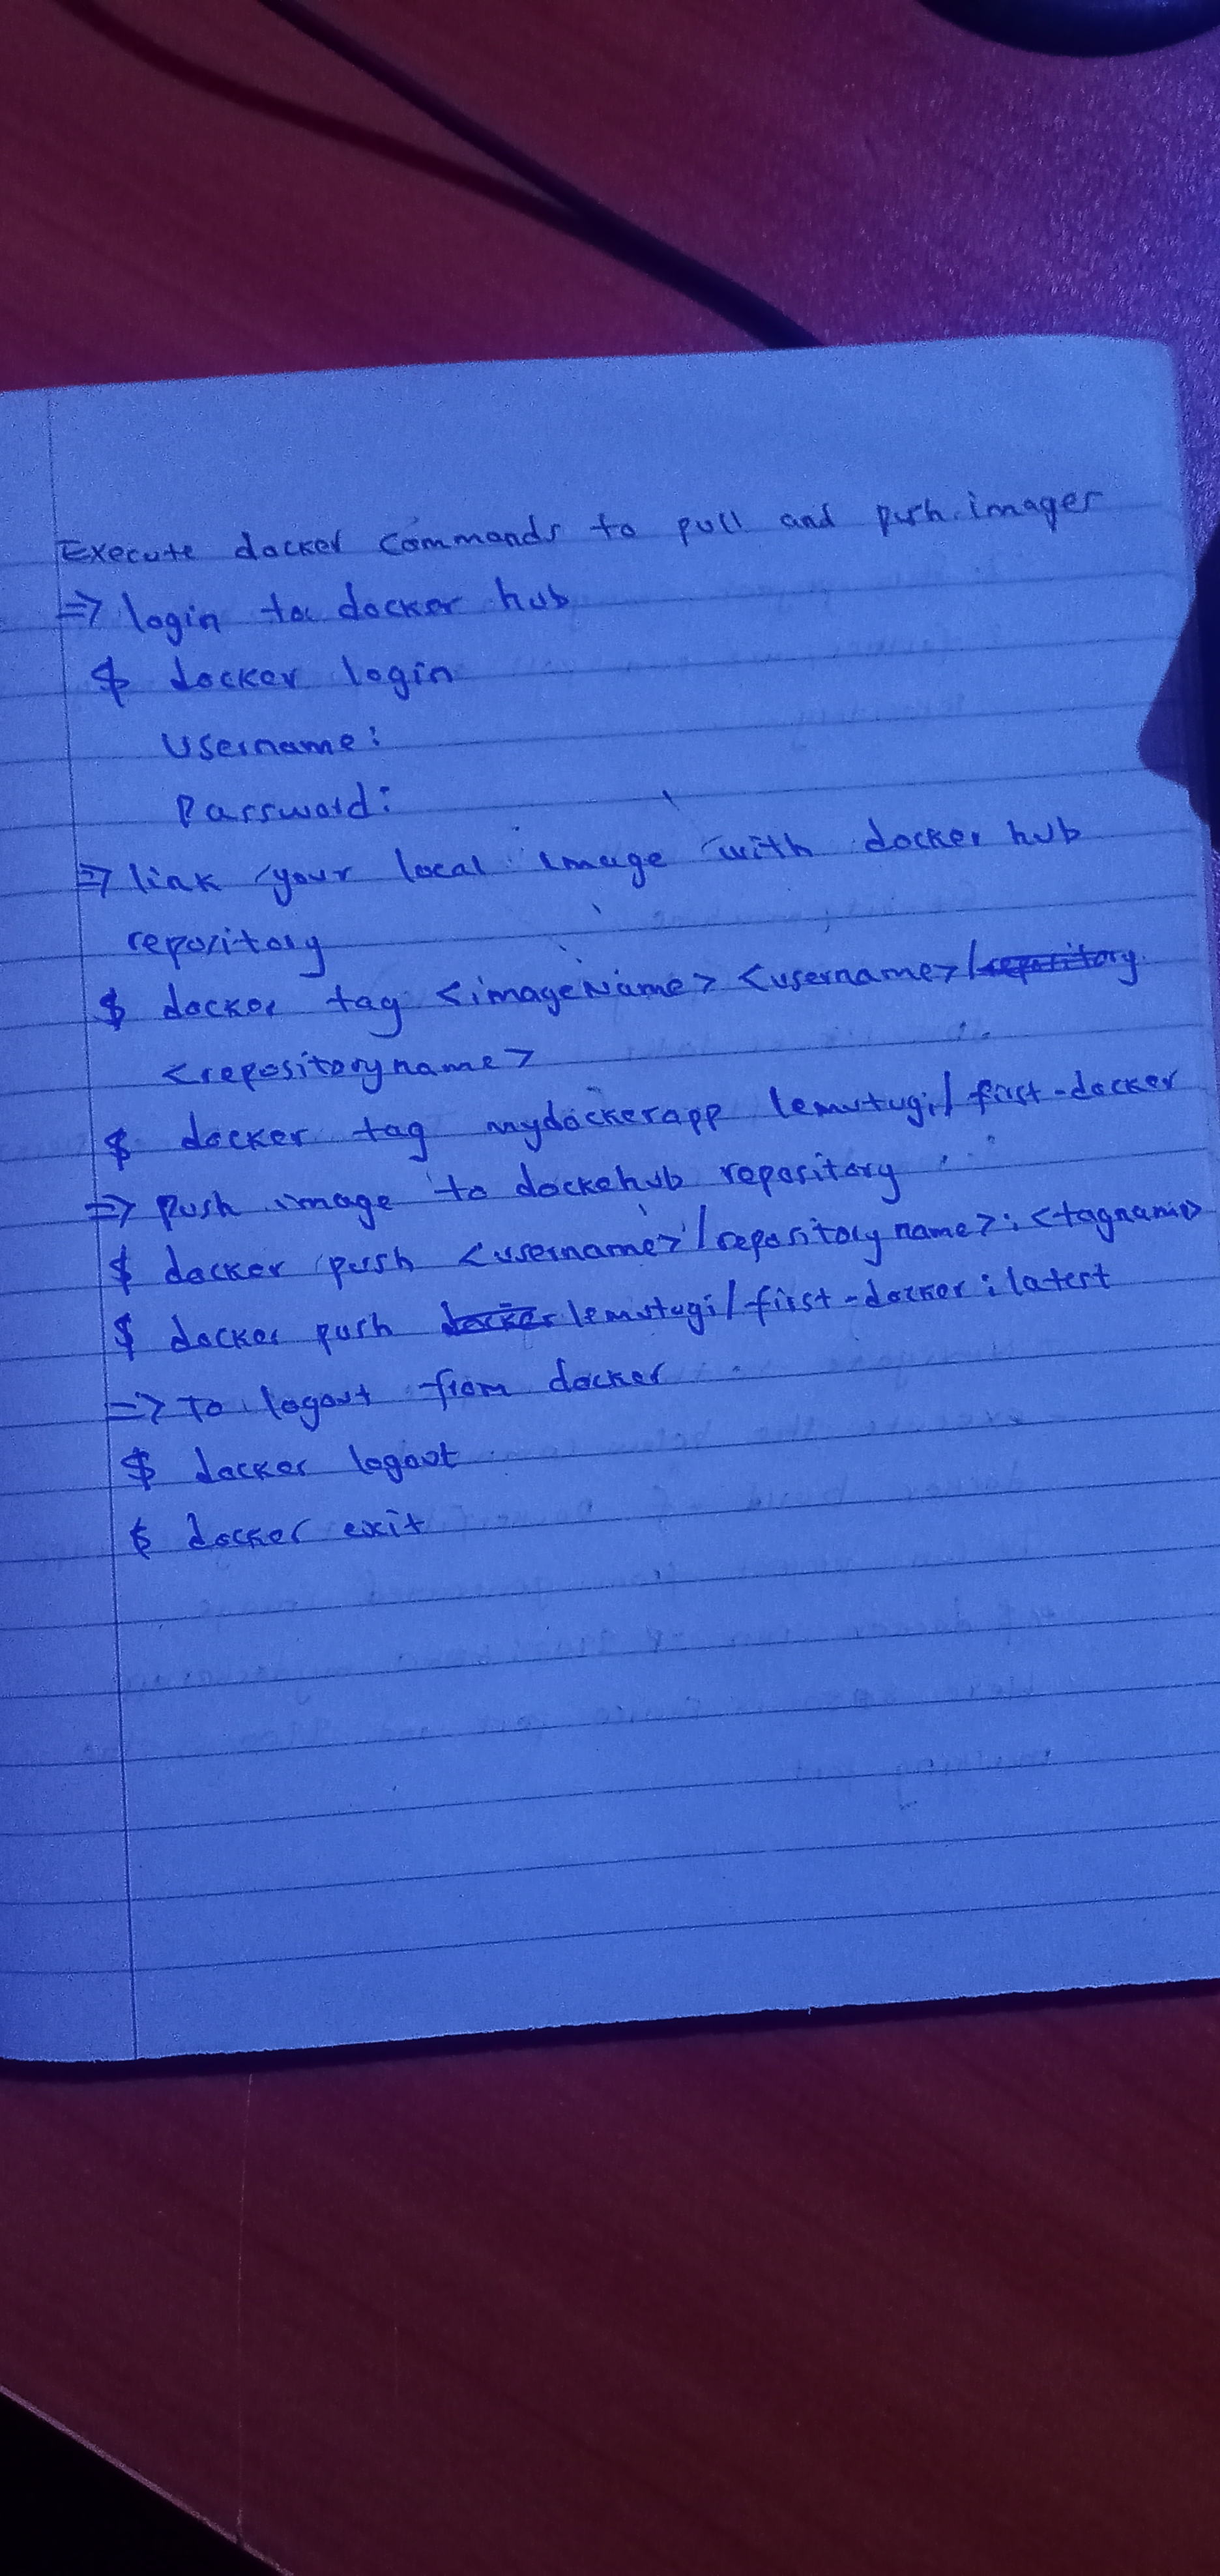 Execute docker commands to pull and push images
=> login to docker hub
$ docker login
Username:
Password:
=> link your local image with docker hub
repository
$ docker tag <imageName> <username>/repository
<repositoryname>
$ docker tag mydockerapp lemutugi/first-docker
=> push image to dockehub repository
$ docker push <username>/repository name>:<tagname>
$ docker push docker lemutugi/first-docker:latest
=> To logout from docker
$ docker logout
$ docker exit